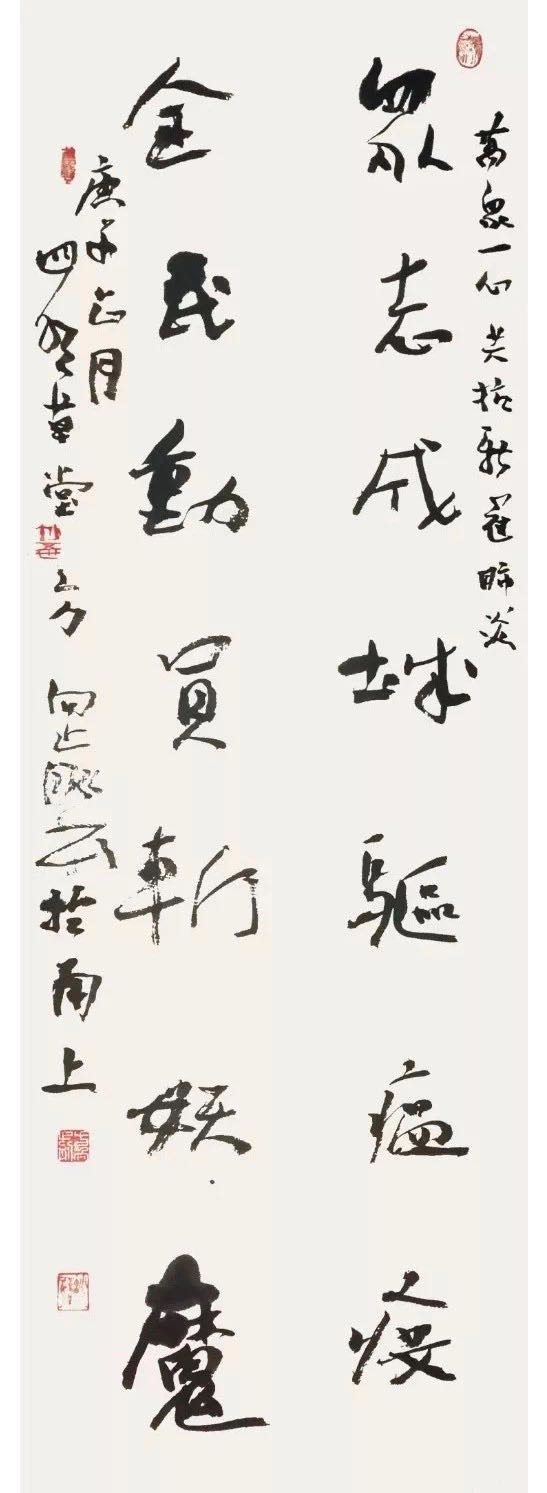 萬眾一心 共抗新冠肺炎
眾志成城驅瘟疫
全民動員斬妖魔
庚子正月
四明草堂主人 於甬上